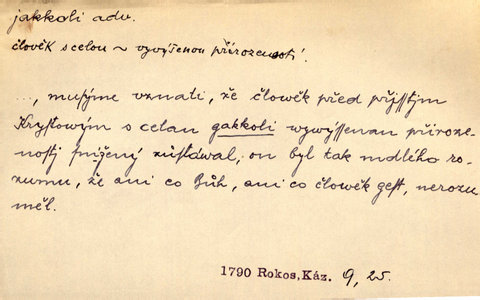 jakkoli adv.
člověk s celou ~ vyvýšenou přirozeností.
..., musýme vznati, že člověk před přjsstjm
Krystowým s celau gakkoli wywyssenau přiroze-
nostj snjžený zůstáwal, on byl tak mdlého ro-
zumu, že ani co Bůh, ani co člověk gest, nerozu
měl.
1790 Rokos, Káz. 9, 25.